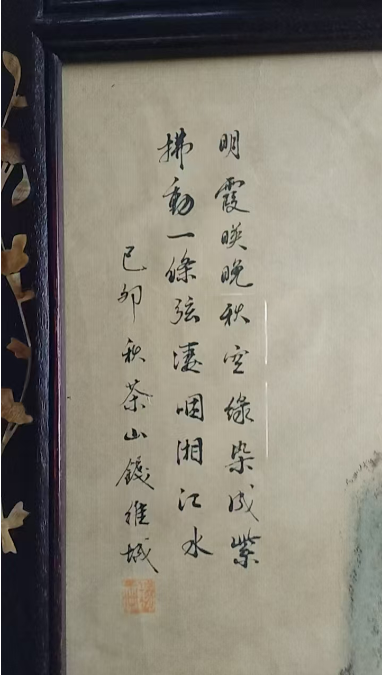 明霞暎晚秋空緑染成紫
拂動一條弦淒咽湘江水
己卯秋茶山錢維城